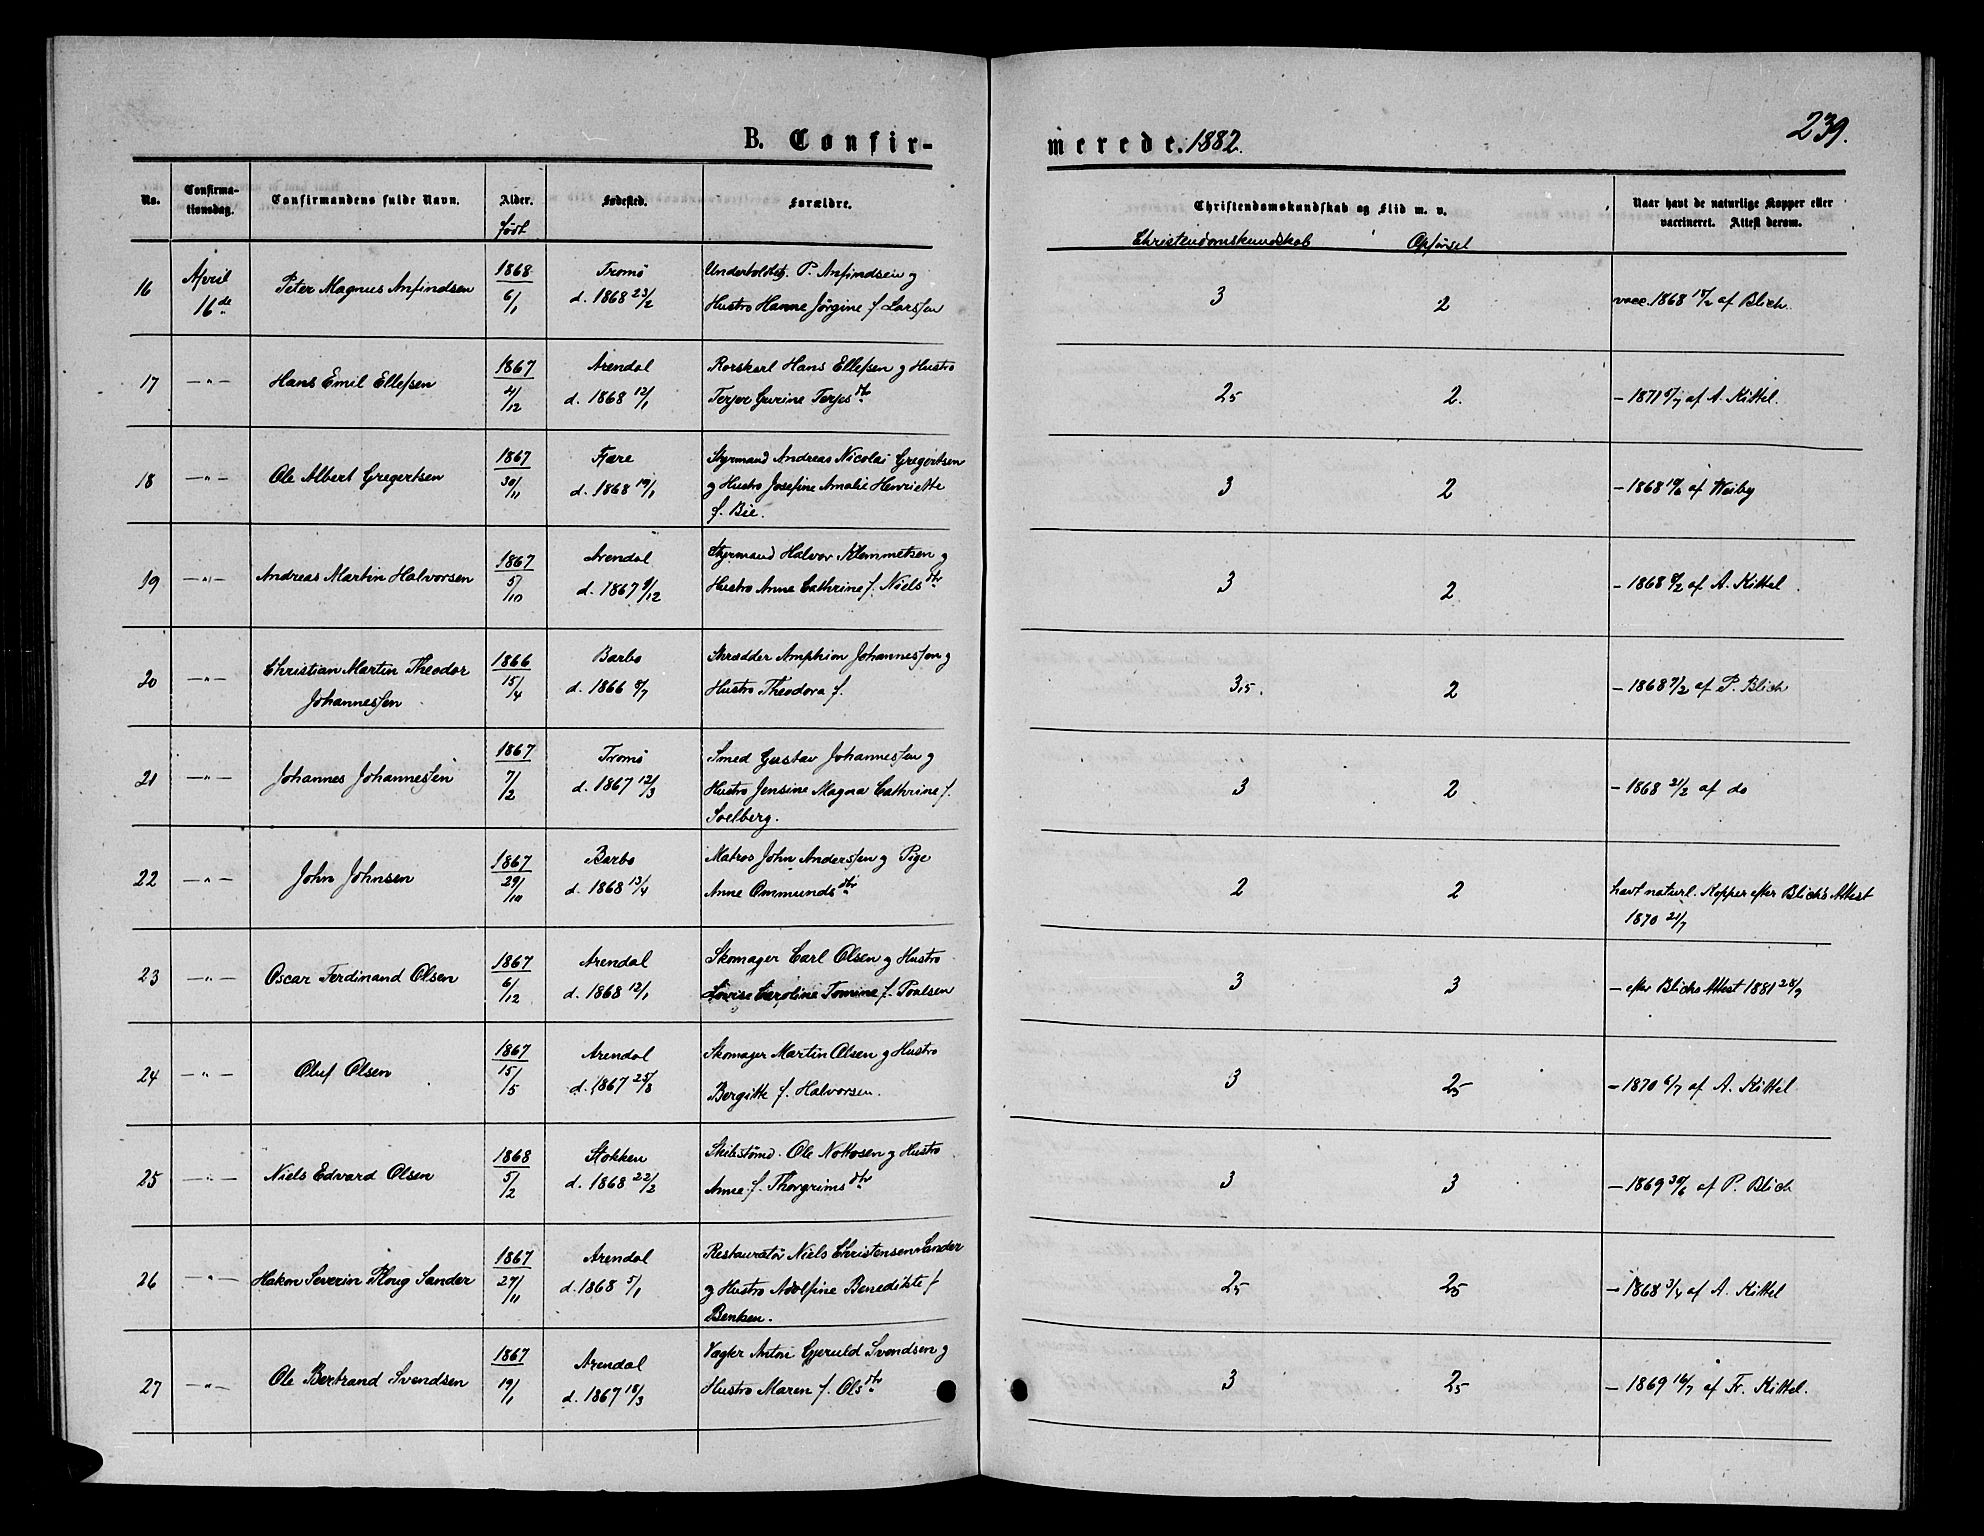 B. Confir-
merede. 1882.
239.
No.
Confirma-
tionsdag.
Confirmandens fulde Navn.
Alder.
født
Fødested.
Forældre.
Christendomskundskab og Flid m. v.
Christendomskundskab
Opførsel
Naar havt de naturlige Kopper eller
vaccineret. Attest derom.
16
April
16de
Peter Magnus Anfindsen
1868
6/1
Tromø
d. 1868 23/2
P. Anfindsen og
Hustro Hanne Jørgine f. Larssen
3
2
vacc. 1868 18/2 af Blich.
17
—"—
Hans Emil Ellefsen
1867
4/12
Arendal
d. 1868 12/1
Rorskarl Hans Ellefsen og Hustro
Gurine Terjesdtr
25
2.
— 1871 6/7 af A. Kittel.
18
—"—
Ole Albert Gregertsen
1867
30/11
Fjære
d. 1868 19/1
Styrmand Andreas Nicolai Gregertsen
og Hustro Josefine Amalie Henriette
f. Bie.
3
2
— 1868 af Weiby
19
—"—
Andreas Martin Halvorsen
1867
5/10
Arendal
d. 1867 9/12
Styrmand Halvor Klemmetsen og
Hustro Anne Cathrine f. Nielsdtr
3
2
— 1868 8/2 af A. Kittel.
20
—"—
Christian Martin Theodor
Johannessen
1866
15/4
Barbo
d. 1866 8/7
Skrædder Amphion Johannessen og
Hustro Theodora f.
3,5.
2
— 1868 7/2 af P. Blich
21
—"—
Johannes Johannessen
1867
7/2
Tromø
d. 1867 12/3
Smed Gustav Johannessen og
Hustro Jensine Magna Cathrine f.
Soelberg.
3
2
— 1868 21/2 af do
22
—"—
John Johnsen
1867
29/10
Barbo
d. 1868 13/4
Matros John Anderssen og Pige
Anne Ommundsdtr
2
2
havt naturl. Kopper efter Blichs Attest
1870 21/7
23
—"—
Oscar Ferdinand Olsen
1867
6/12
Arendal
d. 1868 12/1
Skomager Carl Olsen og Hustro
Lovise Caroline Tomine f. Poulsen
3
3
— efter Blichs Attest 1881 28/9
24
—"—
Oluf Olsen
1867
15/5
Arendal
d. 1867 25/8
Skomager Martin Olsen og Hustro
Bergitte f. Halvorsen.
3
25
— 1870 6/7 af A. Kittel
25
—"—
Niels Edvard Olsen
1868
5/2
Stokken
d. 1868 22/2
Skibstømd. Ole Nottosen og Hustro
Anne f. Thorgrimsdtr
3
3
— 1869 30/6 af P. Blich
26
—"—
Hakon Severin Ploug Sander
1867
27/11
Arendal
d. 1868 5/1
Restauratør Niels Christensen Sander
og Hustro Adolfine Benedikte f
Bentsen.
25
25
— 1868 3/4 af A. Kittel
27
—"—
Ole Bertrand Svendsen
1867
19/1
Arendal
d. 1867 18/3
Vægter Anton Gjeruld Svendsen og
Hustro Maren f. Olsdtr
3
25
— 1869 16/7 af Fr. Kittel.